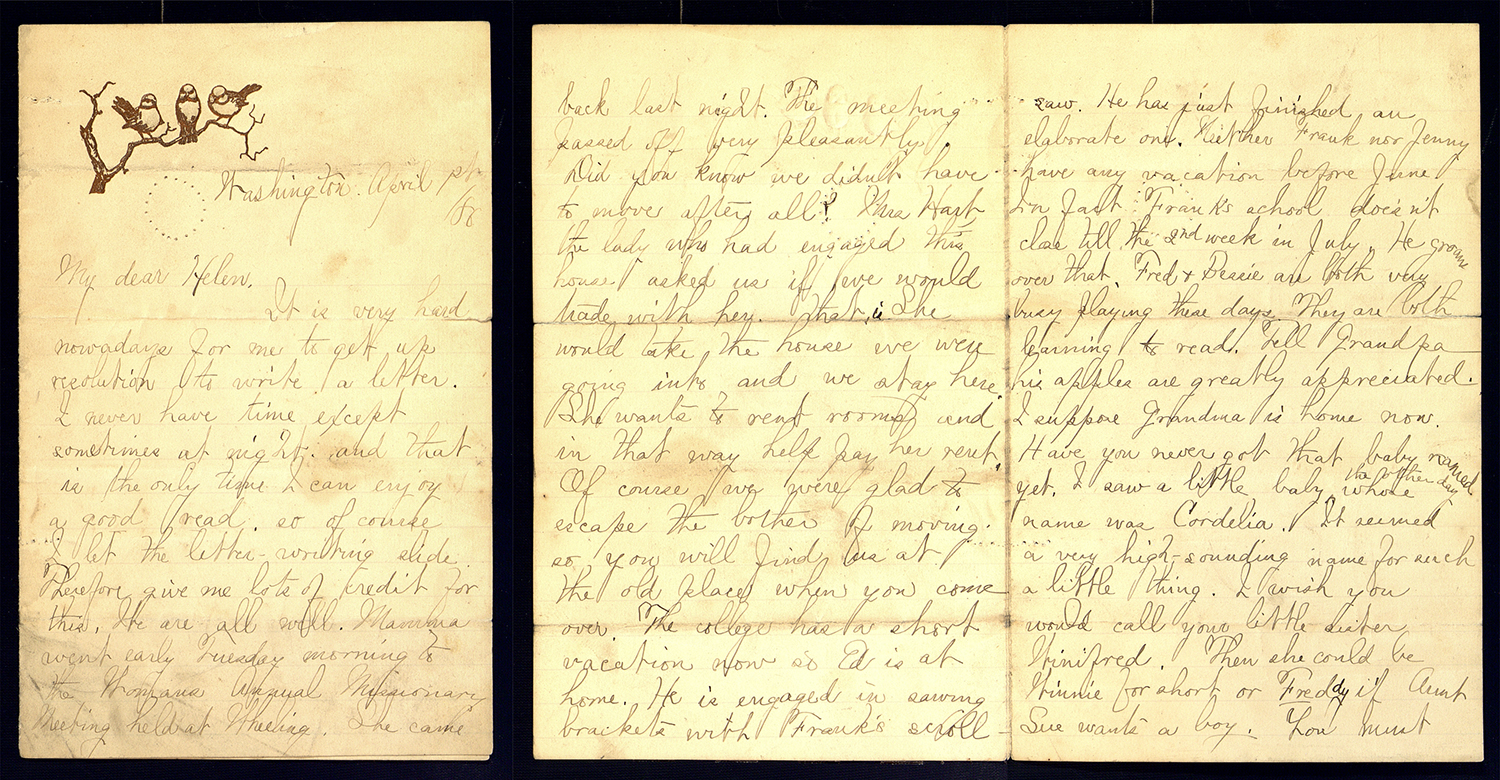 Washington. April 1st
/80
My dear Helen.
It is very hard
nowadays for me to get up
resolution to write a letter.
I never have time except
sometimes at night. and that
is the only time I can enjoy
a good read. so of course
I let the letter-writing slide.
Therefore give me lots of credit for
this. We are all well. Mamma
went early Tuesday morning to
the Womans Annual Missionary
Meeting held at Wheeling. She came
back last night. The meeting
passed off very pleasantly.
Did you know we didn't have
to move after all? Mrs Hart
the lady who had engaged this
house asked us if we would
trade with her. That is she
would take the house we were
going into and we stay here.
She wants to rent rooms and
in that way help pay her rent.
Of course we were glad to
escape the bother of moving.
so you will find us at
the old place when you come
over. The college has a short
vacation now so Ed is at
home. He is engaged in sawing
brackets with Frank's scroll-
saw. He has just finished an
elaborate one. Neither Frank nor Jenny
have any vacation before June
In fact Frank's school doesn't
close till the 2nd week in July. He groans
over that. Fred & Bessie are both very
busy playing these days. They are both
learning to read. Tell Grandpa
his apples are greatly appreciated.
I suppose Grandma is home now.
Have you never got that baby named
yet. I saw a little baby the other day whose
name was Cordelia. It seemed
a very high-sounding name for such
a little thing. I wish you
would call your little sister
Winifred. Then she could be
Winnie for short or Freddy if Aunt
Sue wants a boy. You must